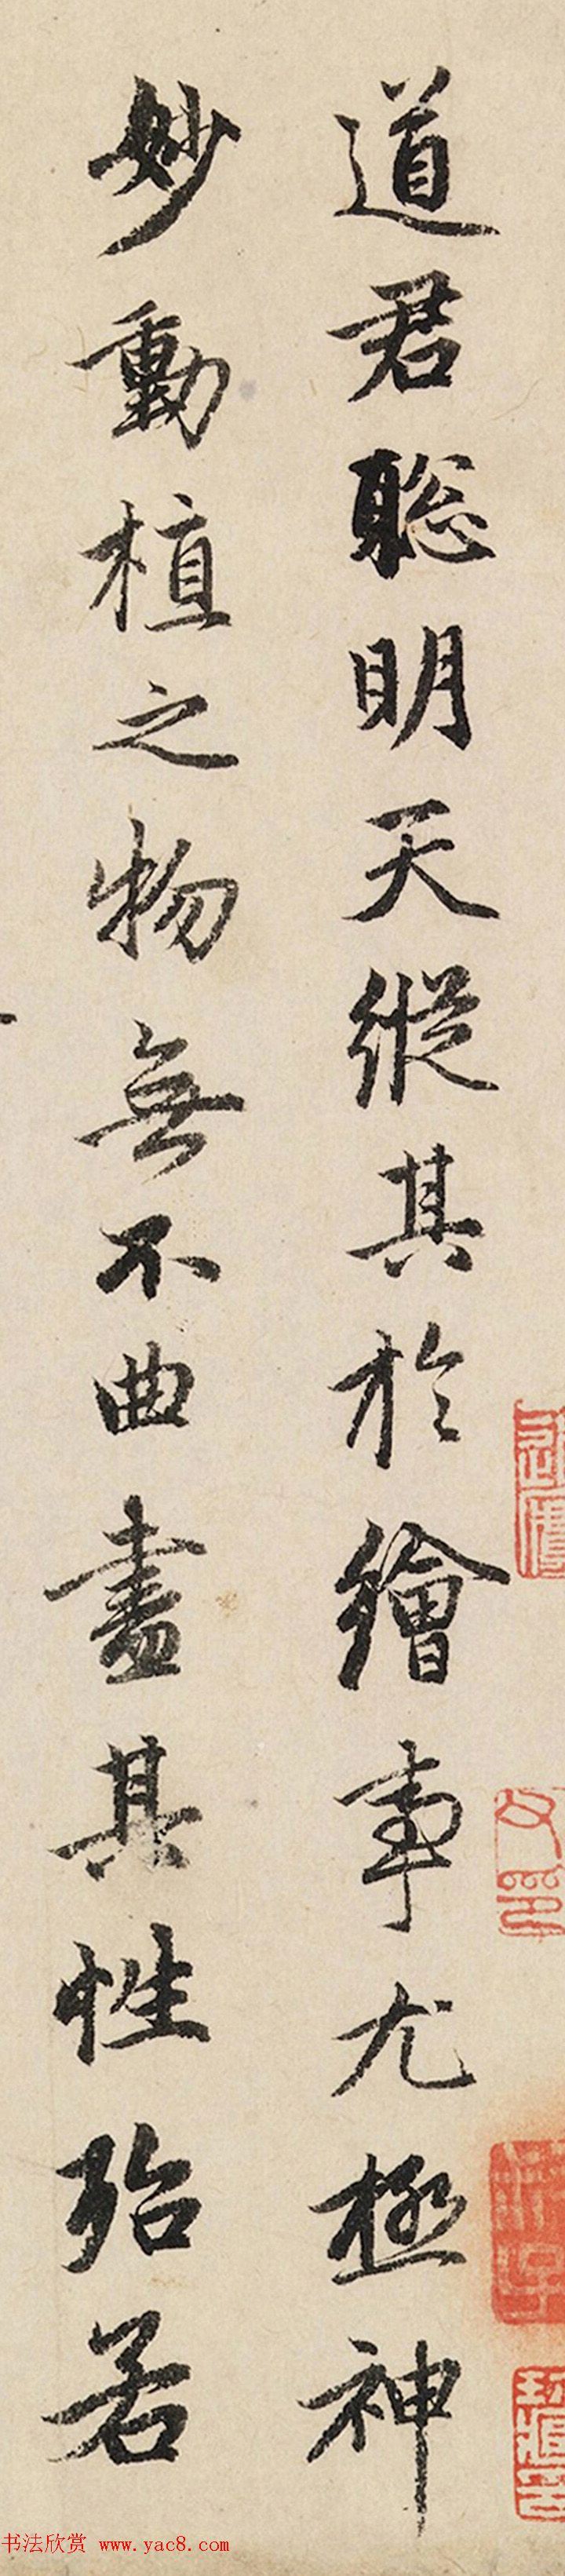 道君聰明天縱其於繪事尤極神
妙動植之物無不曲盡其性殆若
书法欣赏 www.yac8.com